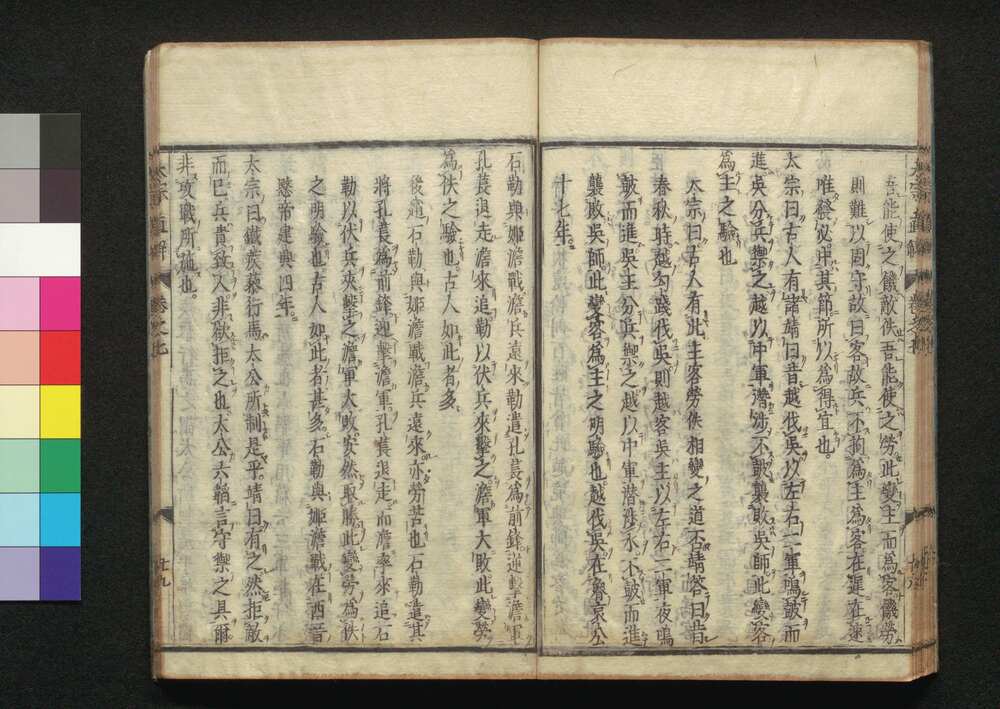 吾能使之饑敵佚吾能使之勞此變主而為客饑勞
則難以固守故曰客故兵不拘為主為客在遲在速
唯發必中其節所以為得宜也
太宗曰古人有諸靖曰昔越伐吳以左右二軍鳴皷而
進吳分兵禦之越以中軍潛渉不皷襲敗吳師此變客
為主之驗也
太宗曰古人有此主客勞佚相變之道否靖答曰昔
春秋時越勾踐伐吳則越客吳主以左右二軍夜鳴
皷而進吳主分兵禦之越以中軍潛渉水不皷而進
襲敗吳師此變客為主之明驗也越伐吳在魯哀公
十七年
石勒與姬澹戰澹兵遠來勒遣孔萇為前鋒逆擊澹軍
孔萇退走澹來追勒以伏兵夾擊之澹軍大敗此變勞
為佚之驗也古人如此者多
後趙石勒與姬澹戰澹兵遠來亦勞苦也石勒遣其
將孔萇為前鋒迎擊澹軍孔萇退走而澹率來追石
勒以伏兵夾擊之澹軍大敗安然取勝此變勞為佚
之明驗也古人如此者甚多石勒與姬澹戰在西晉
愍帝建興四年
太宗曰鐵蒺藜行馬太公所制是乎靖曰有之然拒敵
而已兵貴致人非欲拒之也太公六韜言守禦之具爾
非攻戰所施也
太宗直解 卷之
廿九